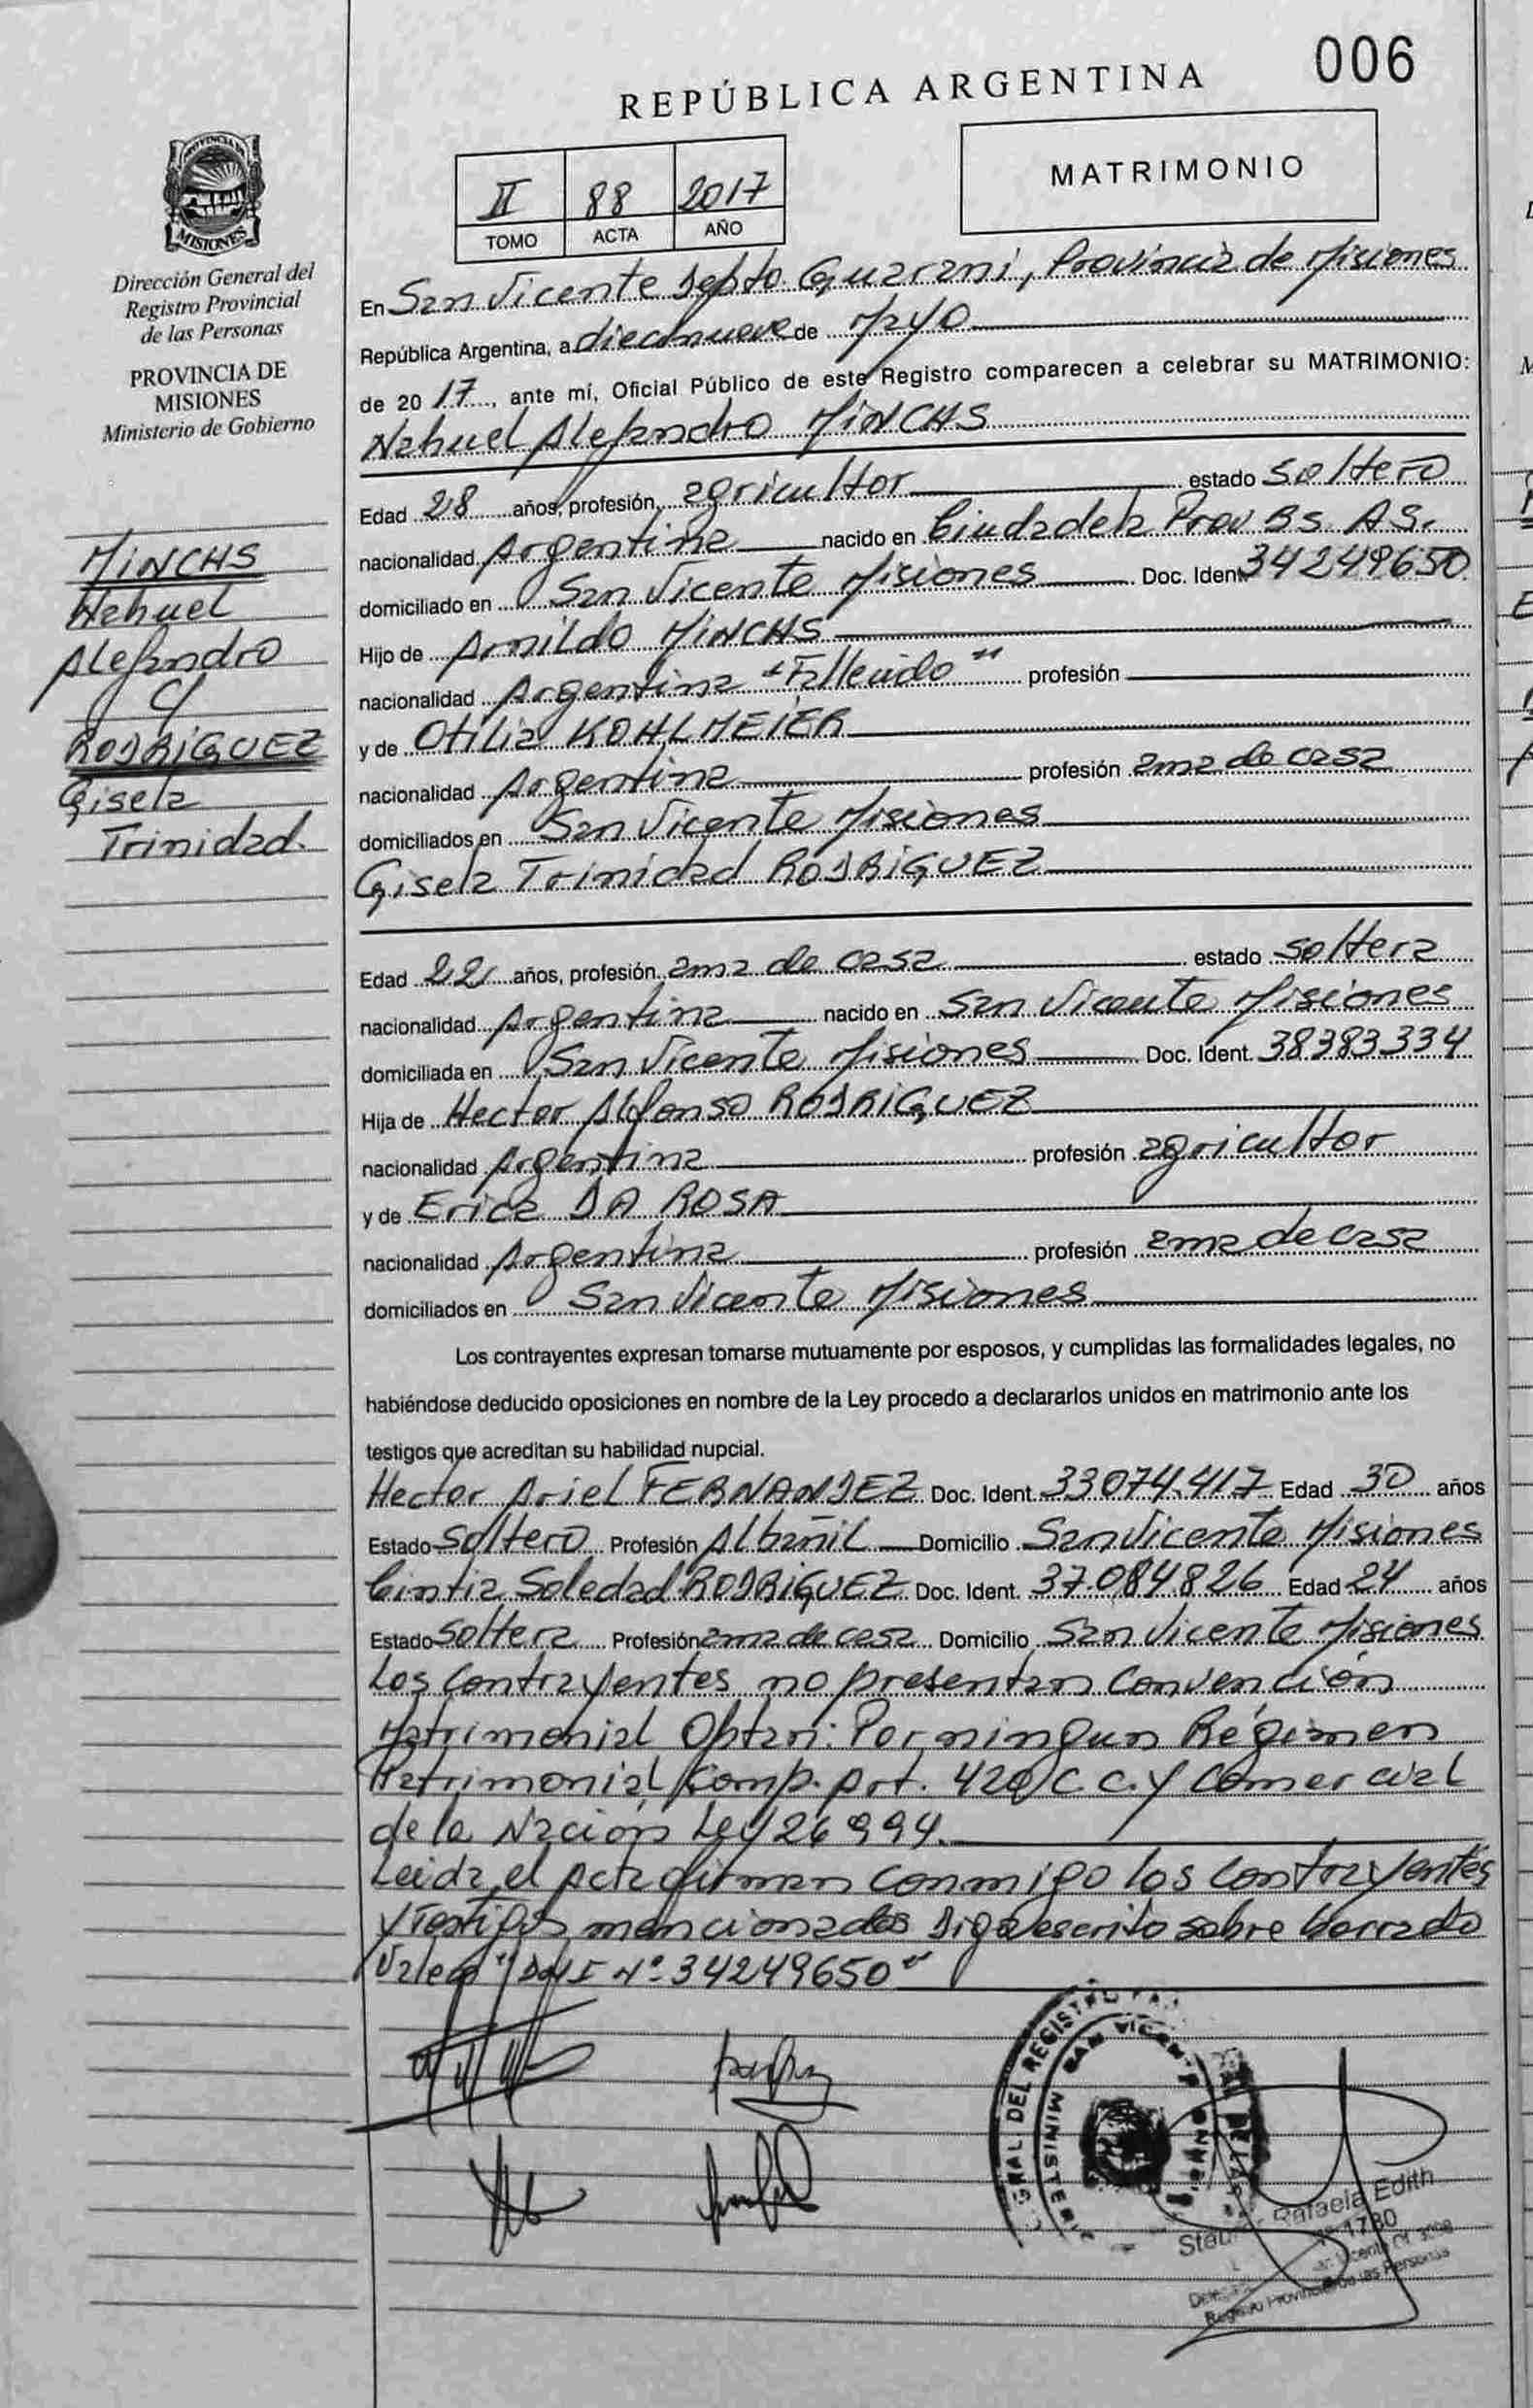 006
REPÚBLICA ARGENTINA
MATRIMONIO
II 88 2017
TOMO ACTA AÑO
PROVINCIA DE
MISIONES
Dirección General del
Registro Provincial
de las Personas
PROVINCIA DE
MISIONES
Ministerio de Gobierno
MINCHS
Nahuel
Alejandro
C/
RODRIGUEZ
Gisela
Trinidad.
En San Vicente Depto. Guarani, Provincia de Misiones
República Argentina, a diecinueve de Mayo
de 2017, ante mí, Oficial Público de este Registro comparecen a celebrar su MATRIMONIO:
Nahuel Alejandro MINCHS
Edad 28 años, profesión, agricultor estado soltero
nacionalidad Argentina nacido en Ciudadela Prov Bs. AS.
domiciliado en San Vicente Misiones Doc. Ident. 34249650
Hijo de Arnildo MINCHS
nacionalidad Argentina "Fallecido" profesión
y de Otilia KOHLMEIER
nacionalidad Argentina profesión ama de casa
domiciliados en San Vicente Misiones
Gisela Trinidad RODRIGUEZ
Edad 22 años, profesión, ama de casa estado soltera
nacionalidad Argentina nacido en San Vicente Misiones
domiciliada en San Vicente Misiones Doc. Ident. 38383334
Hija de Hector Alfonso RODRIGUEZ
nacionalidad Argentina profesión agricultor
y de Erica DA ROSA
nacionalidad Argentina profesión ama de casa
domiciliados en San Vicente Misiones
Los contrayentes expresan tomarse mutuamente por esposos, y cumplidas las formalidades legales, no
habiéndose deducido oposiciones en nombre de la Ley procedo a declararlos unidos en matrimonio ante los
testigos que acreditan su habilidad nupcial.
Hector Ariel FERNANDEZ Doc. Ident. 33074.417 Edad 30 años
Estado Soltero Profesión Albañil Domicilio San Vicente Misiones
Cintia Soledad RODRIGUEZ Doc. Ident. 37.084826 Edad 24 años
Estado Soltera Profesión ama de casa Domicilio San Vicente Misiones
Los Contrayentes no presentan Convención
Matrimonial Optan: Por ningun Régimen
Patrimonial Comp. Art. 420 C.C. y Comercial
de la Nación Ley 26994.
Leida el Acta firman conmigo los Contrayentes
y Testigos mencionados Digo escrito sobre borrado
Vale "DNI Nº 34249650"
GRAL DEL REGISTRO
SAN VICENTE
MINISTE
Rafaela Edith
1780
Registro Provincial de las Personas